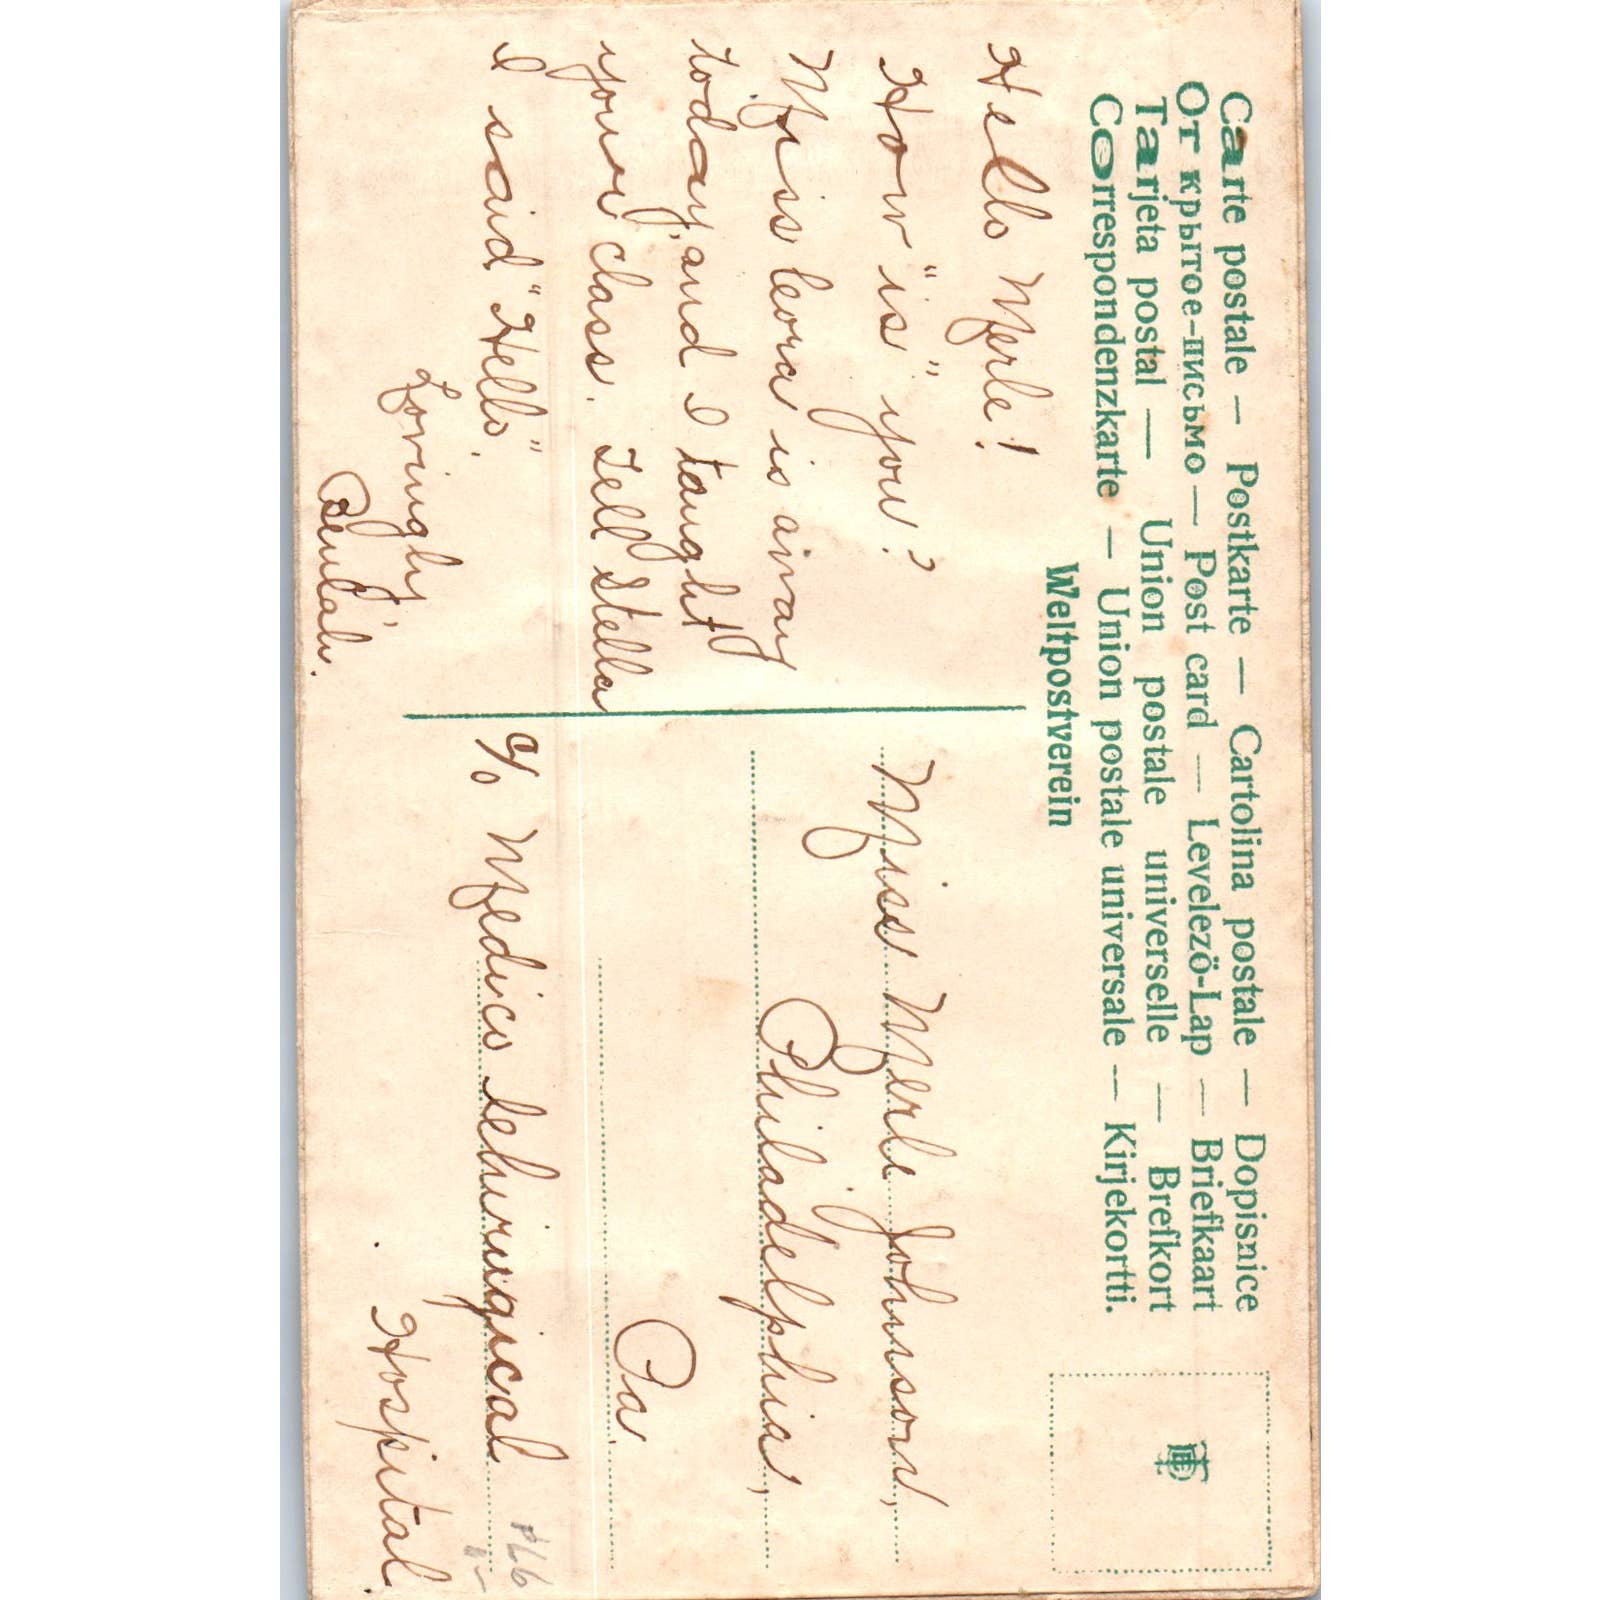 Carte postale — Postkarte — Cartolina postale — Dopisnice
Открытое-письмо — Post card — Levelezö-Lap — Briefkaart
Tarjeta postal — Union postale universelle — Brefkort
Correspondenzkarte — Union postale universale — Kirjekortti.
Weltpostverein
Hello Merle!
How "is" you?
Miss Leora is away
today, and I taught
your class. Tell Stella
I said "Hello".
Lovingly,
Beulah.
Miss Merle Johnson,
Philadelphia,
Pa.
c/o Medico Chirurgical
Hospital.